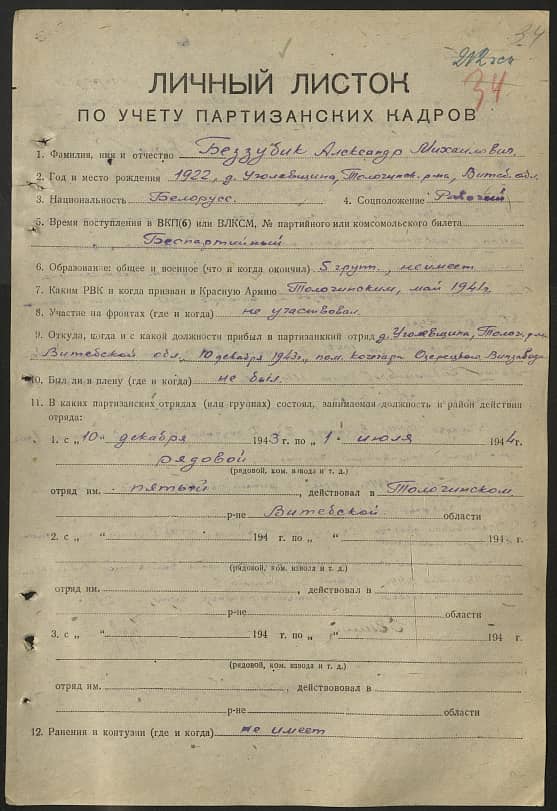 34
34
ЛИЧНЫЙ ЛИСТОК
ПО УЧЕТУ ПАРТИЗАНСКИХ КАДРОВ
1. Фамилия, имя и отчество Беззубик Александр Михайлович.
2. Год и место рождения 1922, д. Уголевщина, Толочинск. р-на, Витеб. обл.
3. Национальность Белорусс. 4. Соцположение Рабочий
5. Время поступления в ВКП(б) или ВЛКСМ, № партийного или комсомольского билета
Беспартийный
6. Образование: общее и военное (что и когда окончил) 5 групп., не имеет
7. Каким РВК и когда призван в Красную Армию Толочинским, май 1941г.
8. Участие на фронтах (где и когда) не участвовал.
9. Откуда, когда и с какой должности прибыл в партизанский отряд д. Уголевщина, Толоч. р-на
Витебской обл., 10 декабря 1943г., пом. Озерецкой Винзавода
10. Был ли в плену (где и когда) не был.
11. В каких партизанских отрядах (или группах) состоял, занимаемая должность и район действия
отряда:
1. с „10“ декабря 1943 г. по „1“ июля 1944 г.
рядовой
(рядовой, ком. взвода и т. д.)
отряд им. пятый, действовал в Толочинском
р-не Витебской области
2. с „ “ 194 г. по „ “ 194 г.
(рядовой, ком. взвода и т. д.)
отряд им. , действовал в
р-не области
3. с „ “ 194 г. по „ “ 194 г.
(рядовой, ком. взвода и т. д.)
отряд им. , действововал в
р-не области
12. Ранения и контузии (где и когда) не имеет